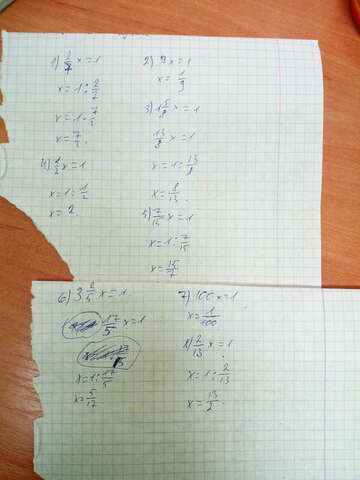 1) 2/7 x = 1
x = 1 : 2/7
x = 1 · 7/2
x = 7/2.
4) 1/2 x = 1
x = 1 : 1/2
x = 2.
2) 9x = 1
x = 1/9
3) 1 5/8 x = 1
13/8 x = 1
x = 1 : 13/8
x = 8/13.
5) 7/15 x = 1
x = 1 : 7/15
x = 15/7
6) 3 2/5 x = 1
17/5 x = 1
x = 1 : 17/5
x = 5/17
7) 100x = 1
x = 1/100
8) 2/13 x = 1
x = 1 : 2/13
x = 13/2.